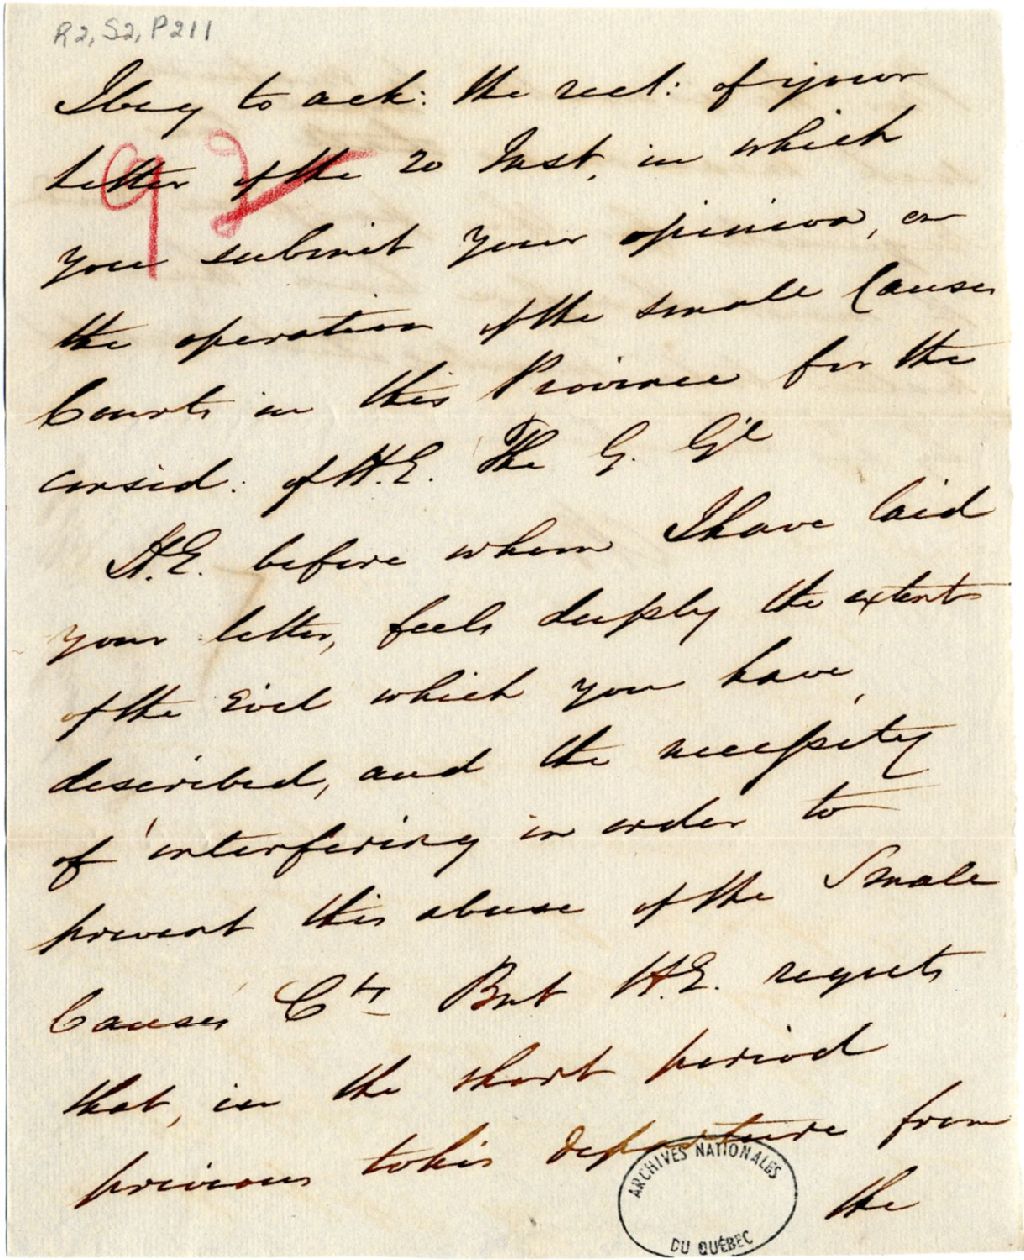 R2, S2, P211
I beg to ack: the rect: of your
92
letter of the 20 Inst. in which
you submit your opinion, on
the operation of the small Causes
Courts in this Province for the
consid: of H.E. The G. G'l
H.E. before whom I have laid
your letter, feels deeply the extent
of the Evil which you have,
described, and the necessity
of interfering in order to
prevent this abuse of the Small
Causes Cts But H.E. regrets
that, in the short period
previous to his departure from
the
ARCHIVES NATIONALES
DU QUÉBEC